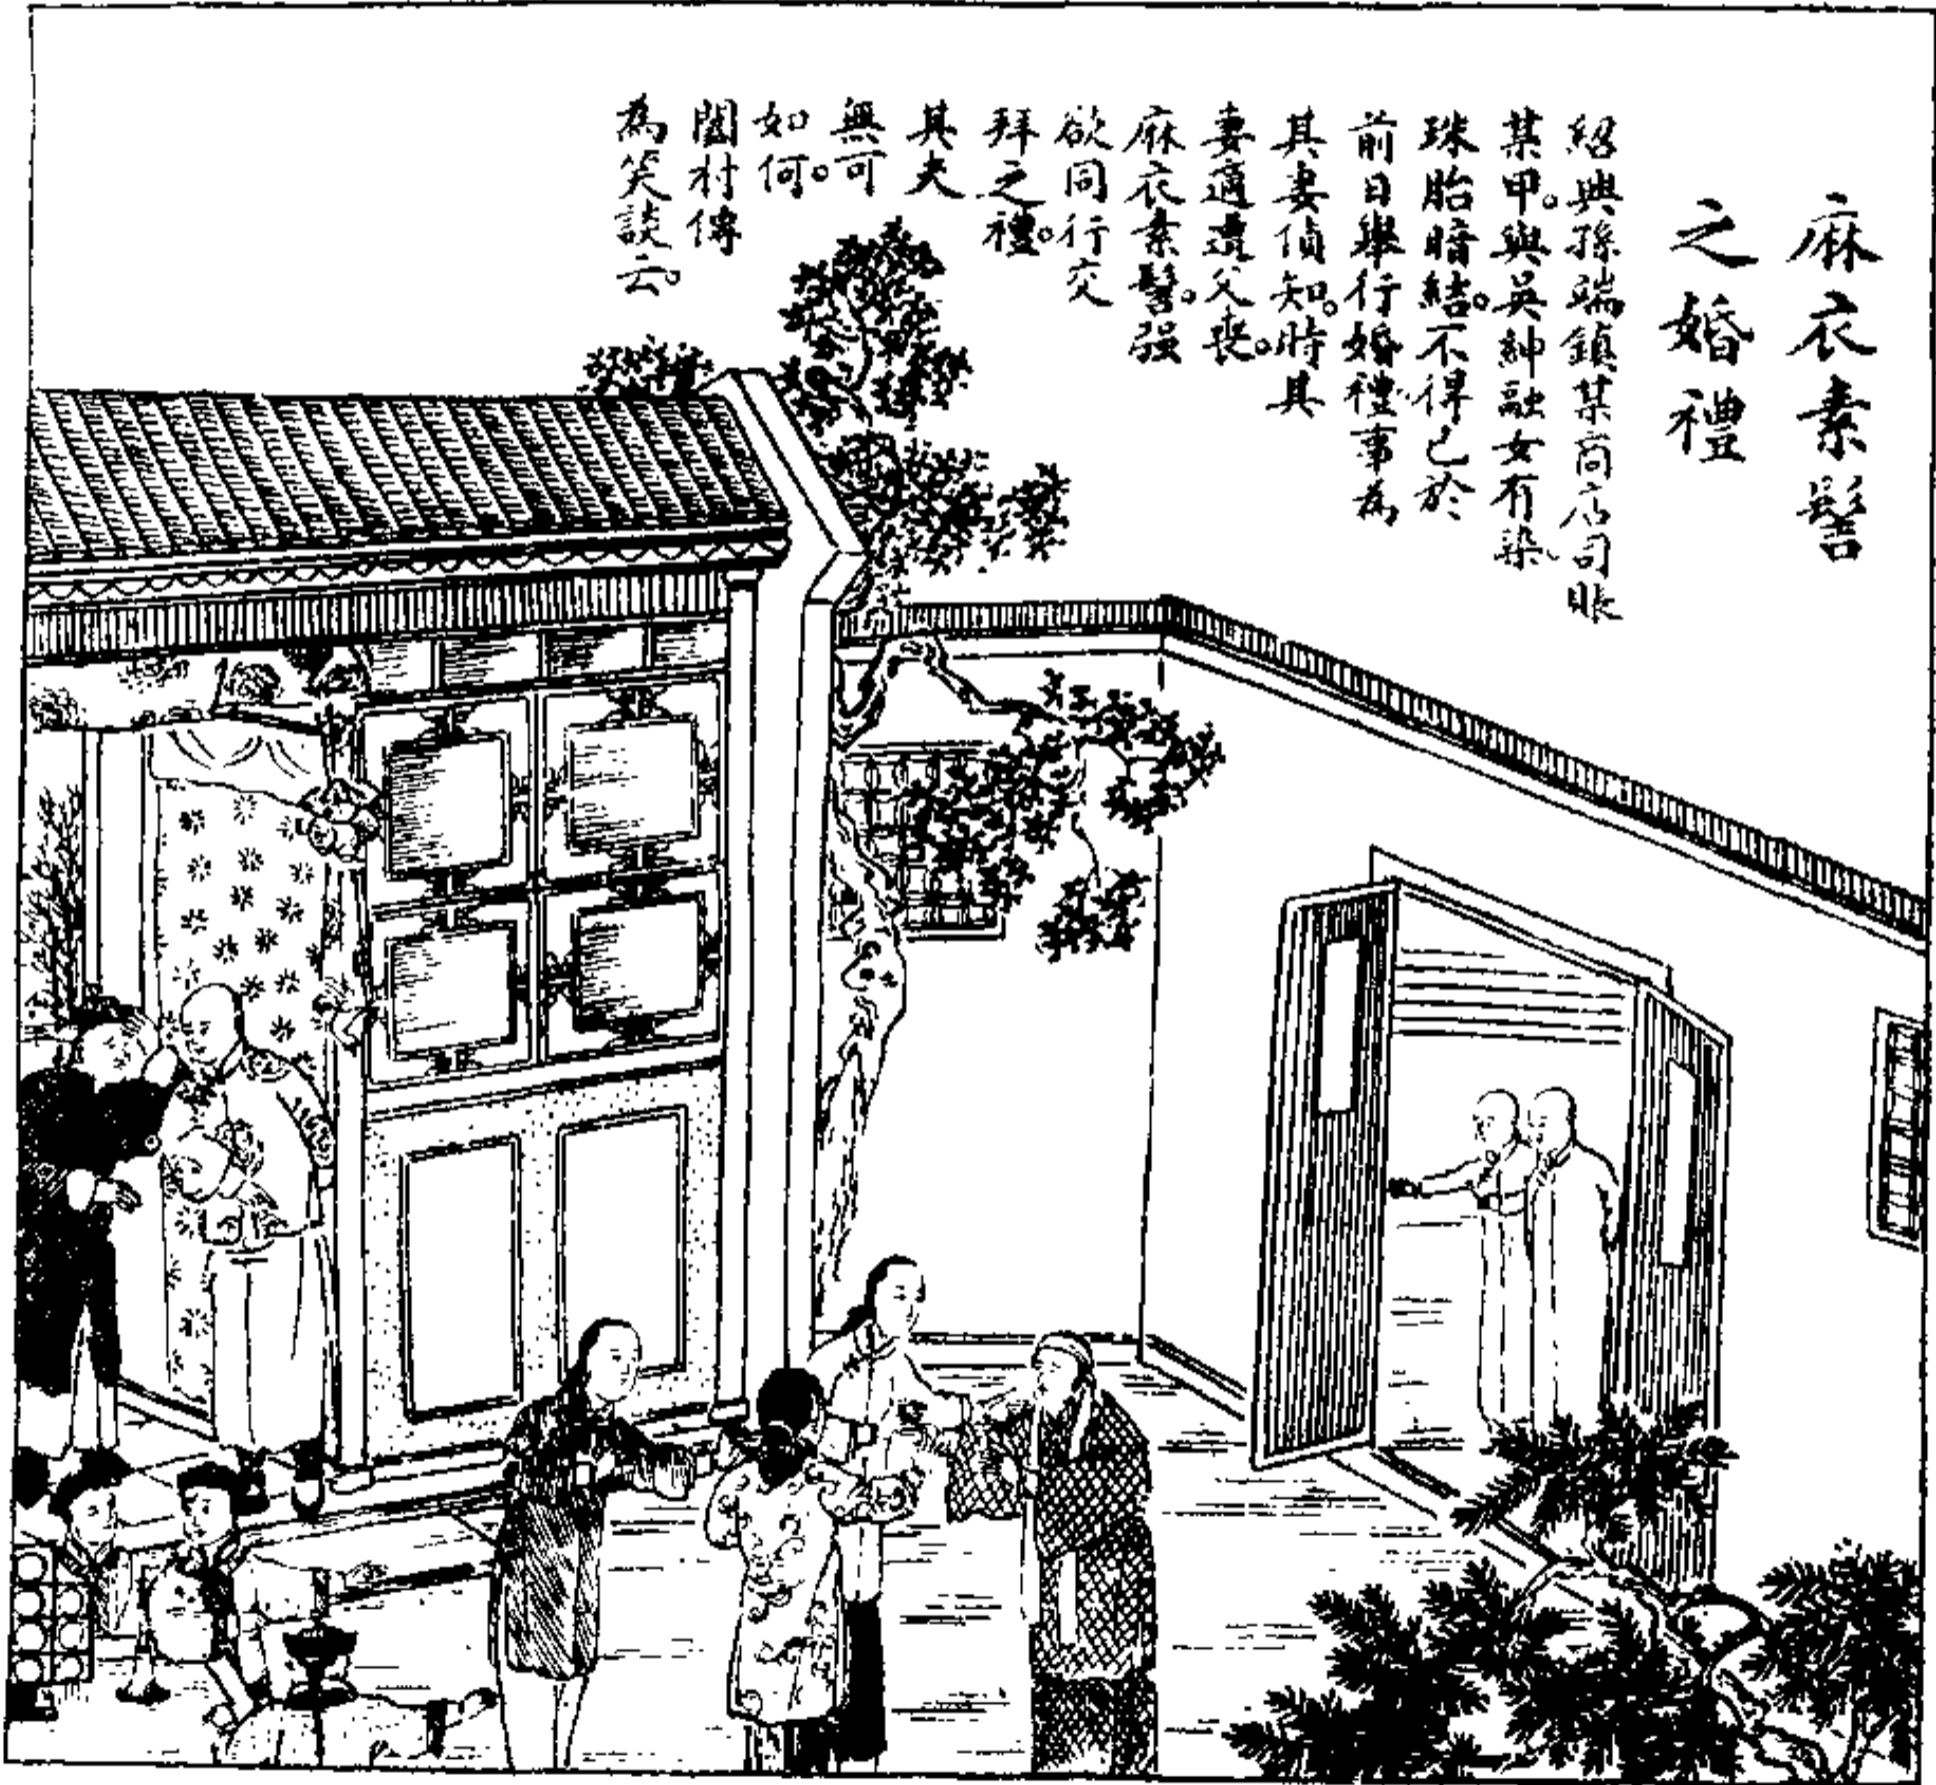 麻衣素髻
之婚禮
紹興孫端鎮某商店司賬
某甲。與吳紳融女有染。
珠胎暗結。不得已於
前日舉行婚禮。事為
其妻偵知。時其
妻適遭父喪。
麻衣素髻。强
欲同行交
拜之禮。
其夫
無可
如何。
闔村傳
為笑談云。